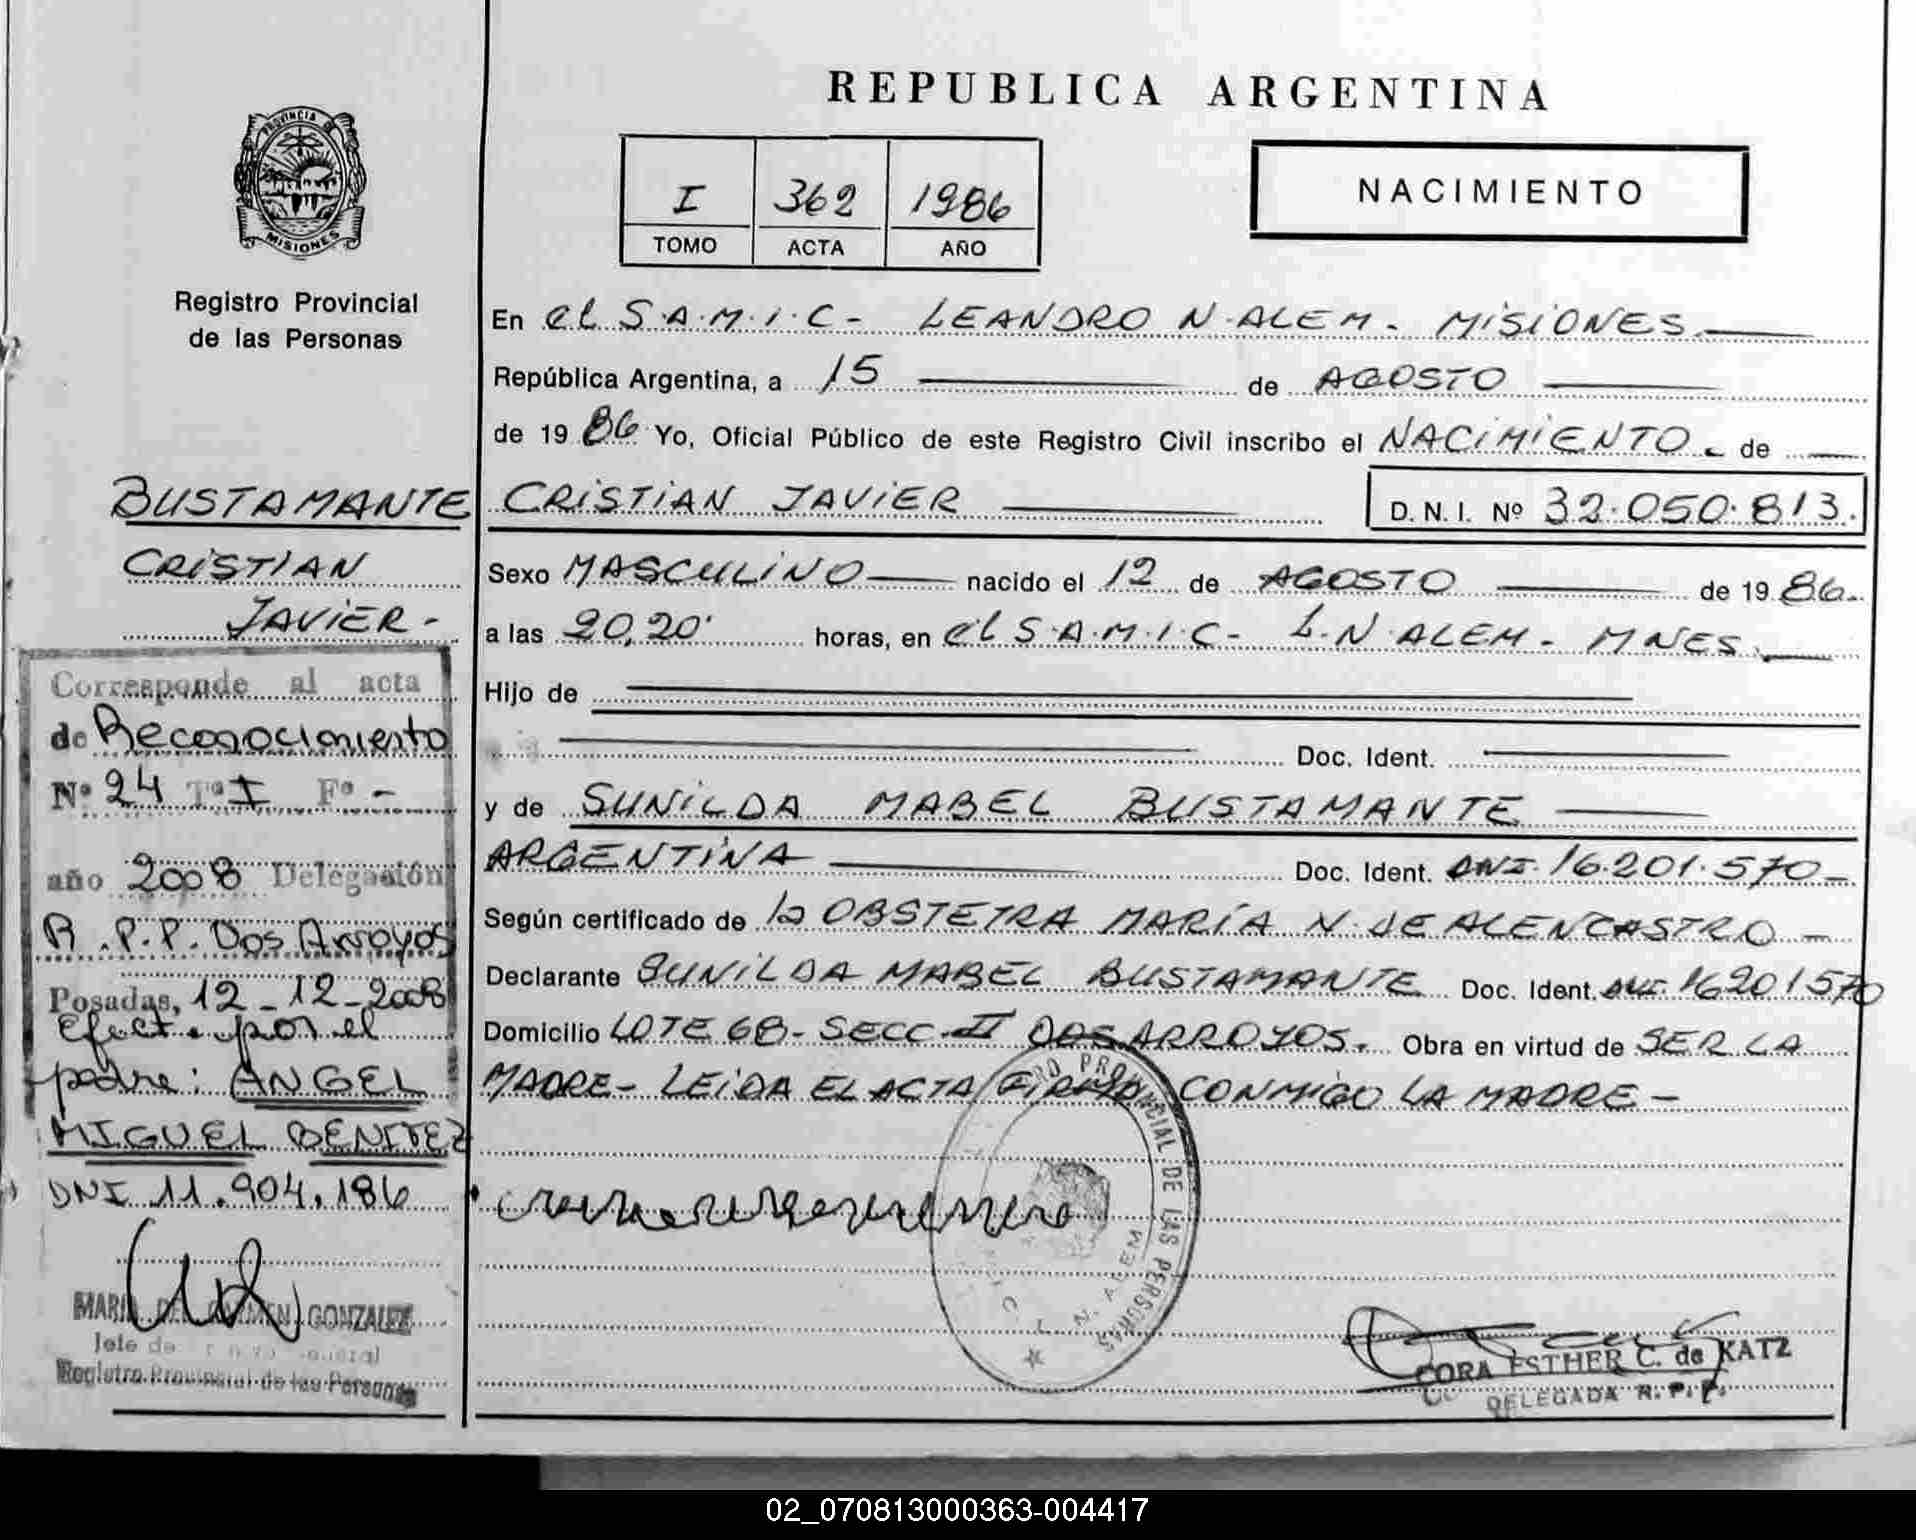 REPUBLICA ARGENTINA
PROVINCIA DE
MISIONES
Registro Provincial
de las Personas
I 362 1986
TOMO ACTA AÑO
NACIMIENTO
En el S.A.M.I.C- LEANDRO N.ALEM. MISIONES.
República Argentina, a 15 de AGOSTO
de 1986 Yo, Oficial Público de este Registro Civil inscribo el NACIMIENTO. de
CRISTIAN JAVIER D.N.I. Nº 32.050.813.
Sexo MASCULINO nacido el 12 de AGOSTO de 1986.
a las 20,20' horas, en el S.A.M.I.C- L.N.ALEM- MNES.
Hijo de
Doc. Ident.
y de SUNILDA MABEL BUSTAMANTE
ARGENTINA Doc. Ident. DNI.16.201.570-
Según certificado de la OBSTETRA MARÍA N. DE ALENCASTRO-
Declarante SUNILDA MABEL BUSTAMANTE Doc. Ident. DNI 16201570
Domicilio LOTE 68- SECC-II DOS ARROYOS. Obra en virtud de SER LA
MADRE- LEIDA EL ACTA FIRMA CONMIGO LA MADRE-
PROVINCIAL DE LAS PERSONAS
N. ALEM
CORA ESTHER C. de KATZ
DELEGADA R.P.P.
BUSTAMANTE
CRISTIAN
JAVIER-
Corresponde al acta
de Reconocimiento
Nº 24 Tº I Fº -
año 2008 Delegación
R.P.P. Dos Arroyos
Posadas, 12-12-2008
Efect. por el
padre: ANGEL
MIGUEL BENITEZ
DNI 11.904.186
MARIA DEL CARMEN GONZALEZ
Jefe de
Registro Provincial de las Personas
02_070813000363-004417